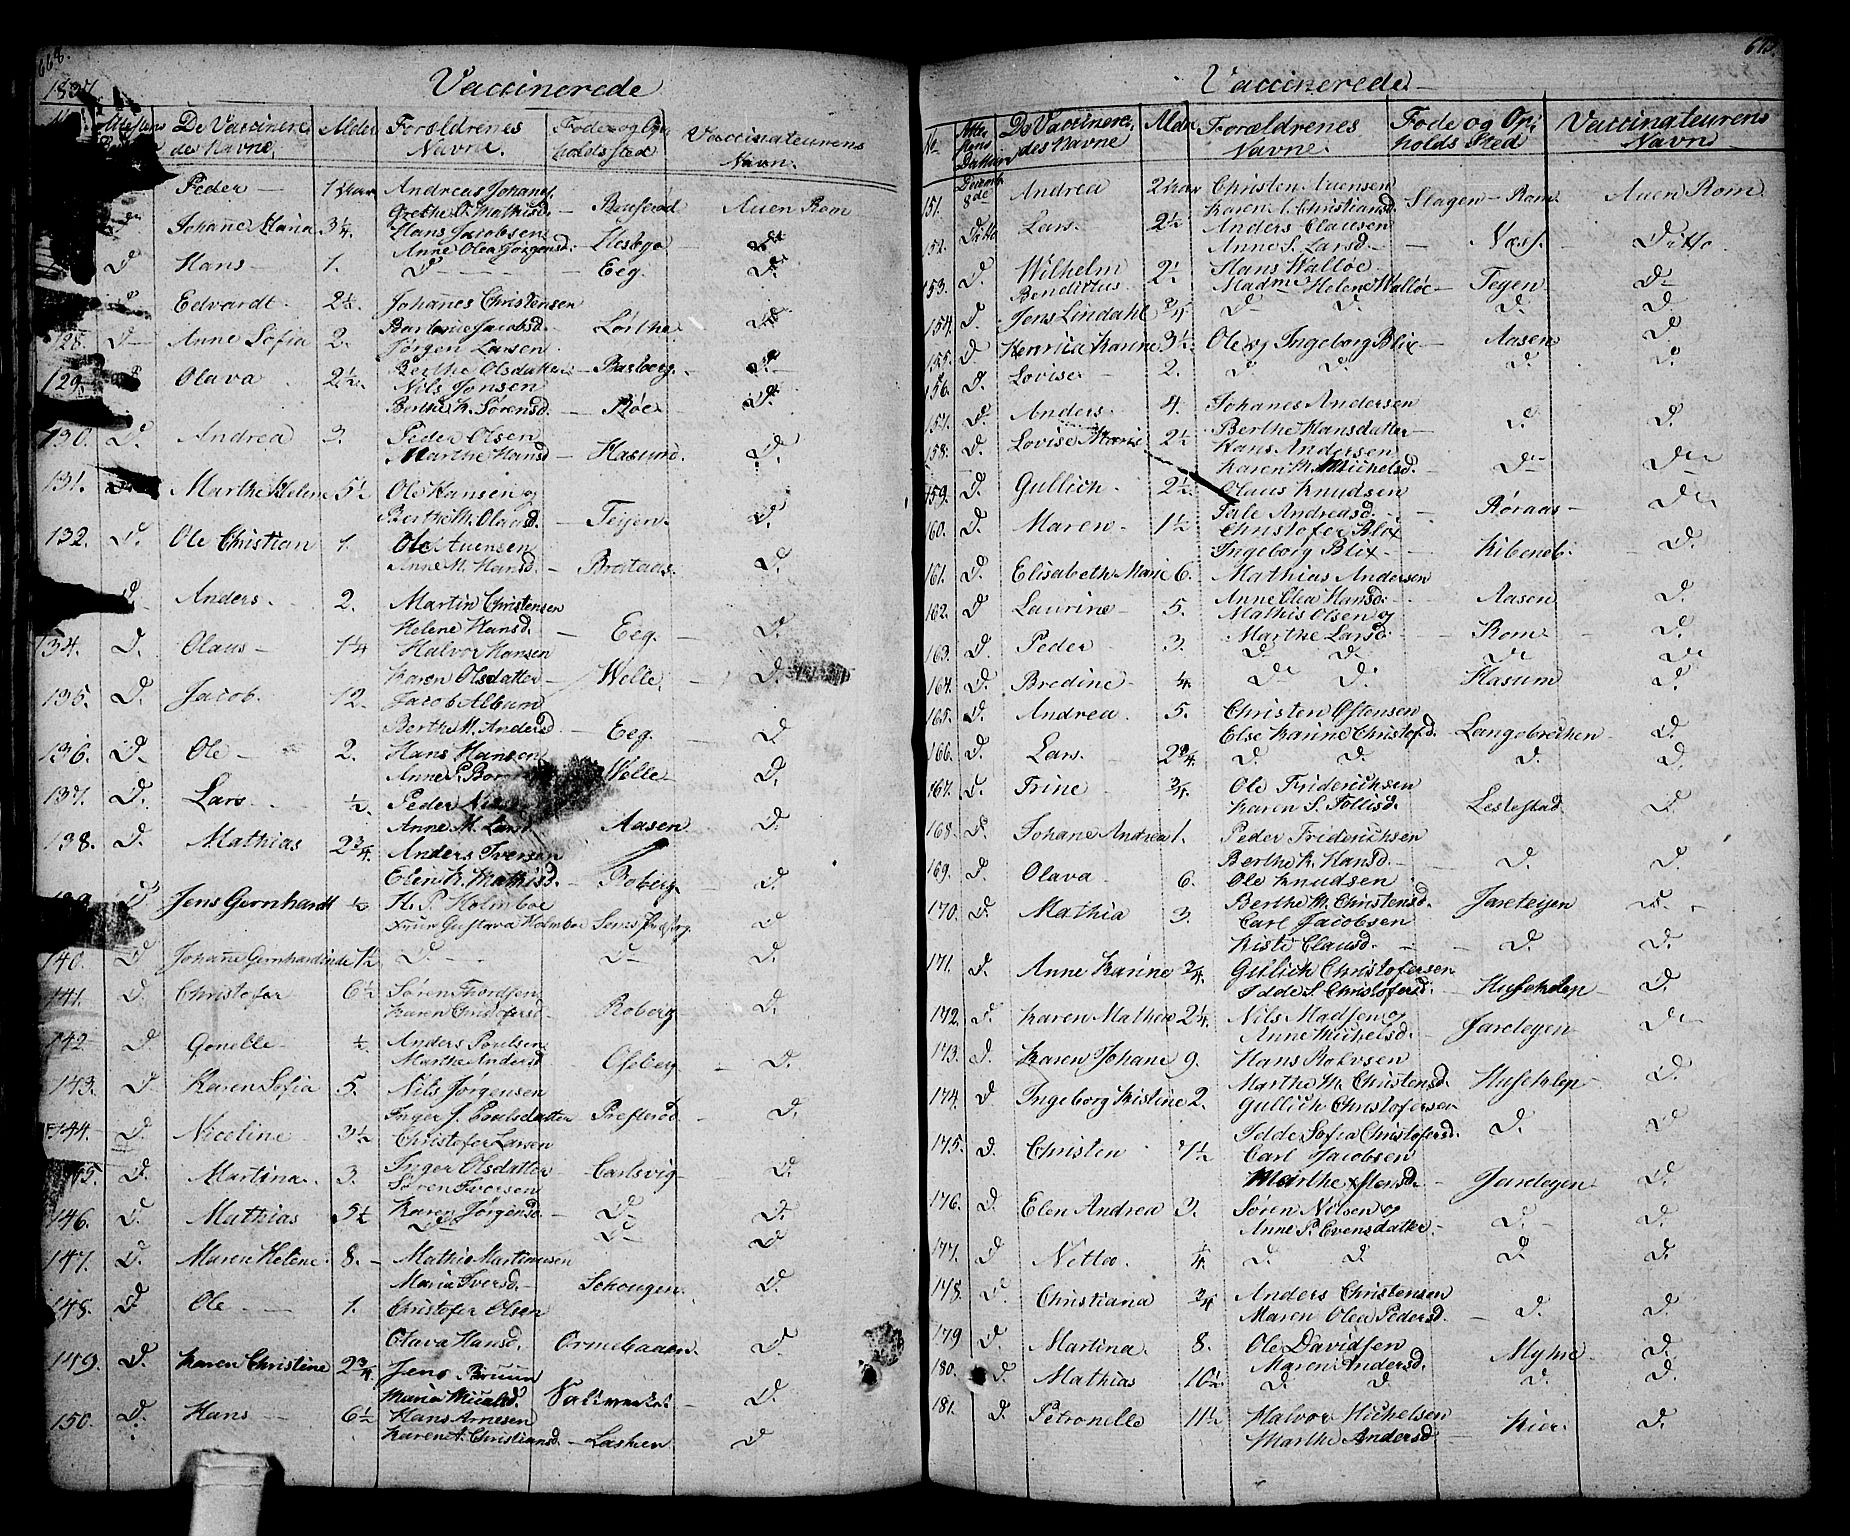 668.
1837
Vaccinerede
De Vaccinere, Alder Forældrenes Føde og Op, Vaccinateurens
des Navne. Navne. holds sted Navn.
Peder 1 Aar Andreas Johans
Grethe O. Mathisd. Auen Rom
Johanne Maria 3/4 Hans Jacobsen
Anne Olea Jørgensd. Hesbye
D. Hans 1. D. Eeg. D.
D. Edvardt 2½. Johanes Christensen
Jacobsd.
128. D. Anne Sofia 2. Jørgen Larsen
Berthe Olsdatter Basberg. D.
129. D. Olava 2½. Nils Jonsen
Berthe K. Sørensd. Røe D.
130. D. Andrea 3. Peder Olsen
Marthe Hansd. Hasund. D.
131. Marthe Helene 5½ Ole Hansen og
Berthe M. Olausd. Teijen D.
132. D. Ole Christian 1. Ole Auensen
Anne M. Hansd. Brataas. D.
Anders 2. Martin Christensen
Helene Hansd. Eeg. D.
134. D. Olaus 1¼ Halvor Hansen
Karen Olsdatter Wolle. D.
135. D. Jacob. 12. Jacob Album
Berthe M. Andersd. Eeg. D.
136. D. Ole 2. Hans Hansen
Anne P. Wolle D.
137. D. Lars ½. Peder
Anne M. Larsd. Aasen D.
138. D. Mathias 2¾. Anders Iversen
Elen K. Mathisd. Roberg D.
139. D. Jens Gernhardt ½ H. P. Holmboe
Frue Gustava Holmboe Sems Præsteg. D.
140. D. Johanne Gernhardinde 1½ D. D. D.
141. D. Christofer 6½ Søren Thordsen
Karen Christofersd. Roberg D.
142. D. Gonelle ½. Anders Poulsen
Marthe Andersd. Ofsberg D.
143. D Karen Sofia 5. Nils Jørgensen
Inger J. Poulsdatter Presterød D.
144. D. Nicoline 3½ Christofer Larsen
Inger Olsdatter Carlsvig D.
145. D. Martina. 3. Søren Iversen
Karen Jørgensd. D. D.
146. D. Mathias 5½ D. D. D.
147. D. Maren Helene. 8. Mathis Martinusen
Maria Iversd. Schougen. D.
148. D. Ole 1. Christofer Olsen
Olava Hansd. Ormebaaen D.
149. D. Karen Christine 2¾ Jens Bruun
Maria Nicolsd. D.
150. D. Hans 6½ Hans Arnesen
Karen A. Christiansd. D
Vaccinerede
No Atte stens Datum De Vaccinere, des Navne Aldr Forældrenes Navne. Føde og Op, holds Sted Vaccinateurens Navn
151. Decemb. 8de Andrea 2½ Aar Christen Auensen
Karen A. Christiansd. Slagen Rom Auen Rom
152. Ditto Lars 2½ Anders Clausen
Anne S. Larsd. Næss. Ditto.
153. D. Wilhelm 2½ Hans Walløe
Bendittus. Madme Helene Walløe Tegen D.
154. D. Jens Lindahl ¾ D. D. D. D.
155. D. Henrica Karine 3½. Ole og Ingeborg Blix Aasen D
156. D. Lovise 2. D. D. D. D.
157. D. Anders 4. Johanes Andersen
Berthe Hansdatter D. D.
158. D. Lovise Marie 2½ Hans Andersen
Karen M. Michelsd. D. D.
159. D. Gullich 2½. Olaus Knudsen
Tale Andreasd. Røraas D.
160. D. Maren 1½ Christofer Blix
Ingeborg Blix D.
161. D. Elisabeth Marie 6. Mathias Andersen
Anne Elea Hansd. Aasen D.
162. D. Laurine 5. Mathis Olsen og
Marthe Larsd. Rom D.
163. D. Peder 3. D. D. D. D.
164. D. Bredine ¼ D. D. Hasum D.
165. D. Andrea 5. Christen Ostensen
Else Karine Christofd. Langebrekken D.
166. D. Lars 2¾. D. D. D. D.
167. D. Trine ¾ Ole Friderichsen
Karen S. Tollisd. Lestestad D.
168. D. Johane Andrea 1. Peder Friderichsen
Berthe K. Hansd. D. D.
169. D. Olava 6. Ole Knudsen
Berthe M. Christensd. Jareteijen D.
170. D. Mathia 3. Carl Jacobsen
Kiste Clausd. D. D.
171. D. Anne Karine ¾ Gullich Christofersen
Idde S. Christofersd. Husehelep D.
172. D. Karen Mathea 2¼. Nils Madsen og
Anne Michelsd. Jaretegen D.
173. D. Karen Johane 9. Hans Rolvsen
Marthe M. Christensd. Husehelep D.
174. D. Ingeborg Kistine 2. Gullich Christofersen
Idde Sofia Christofersd. D. D.
175. D. Christen 7½ Carl Jacobsen
Marthe Jaretegen D.
176. D. Elen Andrea 3. Søren Nilsen og
Anne P. Evensdatter D. D.
177. D. Nettoe ¼ D. D. D. D.
178. D. Christiana ¾ Anders Christensen
Maren Olea Pedersd. D. D.
179 D. Martina 8. Ole Davidsen
Maren Andersd. Myhre D.
180. D. Mathias 10½ D. D. D. D.
181. D. Petronelle 11½ Halvor Michelsen
Marthe Andersd. Kier D.